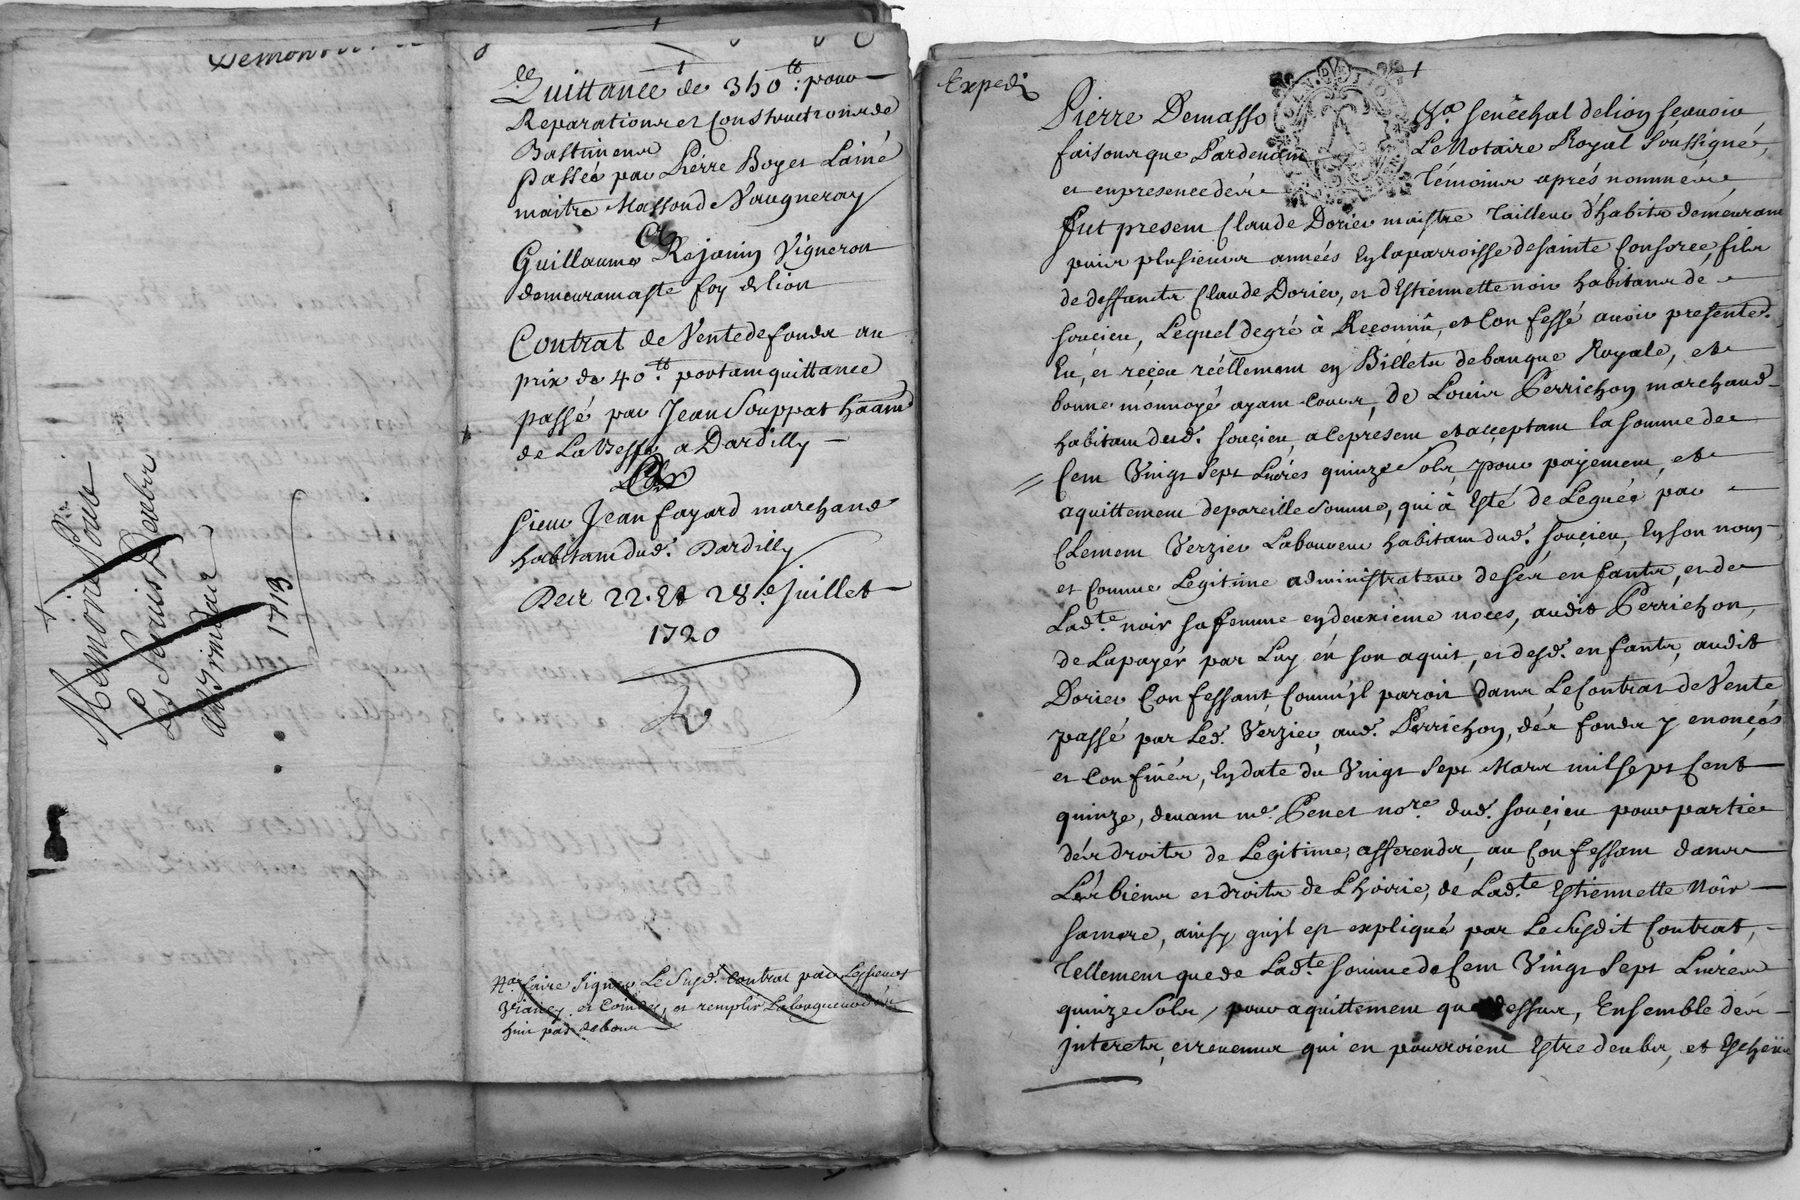 Quittance de 350 tt: pour
Reparations et Constructions de
Bastimens
passée par Pierre Boyer Lainé
maitre Masson de Vaugneray
Et
Guillaume Rejanin Vigneron
demeurant a Ste foy de lion
Contrat de Vente de fonds au
prix de 40 tt portant quittance
passé par Jean Souppat haant
de La Besse a Dardilly
Et
Sieur Jean fayard marchand
habitant dud. Dardilly
Des 22. Et 28.e Juillet
1720
Memoire pour
Les Devis
1713
faire signer Le susd. Contrat par Les sieurs
et remplir La longueur
huit pas de
Expedié
Pierre Demasso Sénéchal de lion scavoir
faisons que Pardevant Le Notaire Royal Soussigné,
et en presence des Témoins aprés nommés
fut present Claude Dorier maistre Tailleur d'habits demeurant
puis plusieurs années En la parroisse de sainte Consorce, fils
de deffuncts Claude Dorier, et d'Estiennette noir habitans de
soucieu, Lequel de gré à Reconnû, et Confessé avoir presente.
Eu, et reçeu réellement en Billets de banque Royale, et
bonne monnoyé ayant cours, de Louis Perrichon marchand
habitant dud. souçieu, a ce present et acceptant la somme de
Cent Vingt Sept Livres quinze Sols, pour payement, et
aquittement de pareille somme, qui à Esté deleguée par
Clement Verzier Laboureur habitant dud. souçieu, En son nom,
et comme Legitime administrateur de ses enfants, et de
Ladte. noir sa femme en deuxieme noces, audit Perrichon,
de La payer par Luy én son aquit, et desd. enfants, audit
Dorier Confessant, Comm'jl paroit dans Le Contrat de Vente
passé par Led. Verzier, aud. Perrichon, dés fonds y enonçés
et Confinés, En date du Vingt Sept Mars mil sept Cent
quinze, devant me. Penet nore. dud. souçieu pour partie
dés droits de Legitime, afferends, au Confessant dans
Lés biens et droits de L'hoirie, de Ladte. Estiennette Noir
sa mere, ainsy qu'jl est expliqué par Le susdit Contrat,
Tellement que de Ladte. somme de Cent Vingt Sept Livres
quinze Sols, pour aquittement que dessus, Ensemble dés
jnterets, et revenus qui en pourroient Estre deubs, et Escheüs